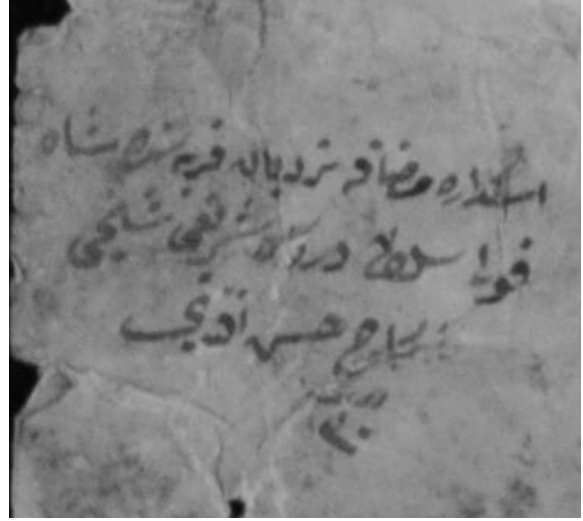 اسكداره مضافه نردبان قریه سنده شاه
قولی سلطان درگاه شریفی شیخی
الحاج حسن افندی